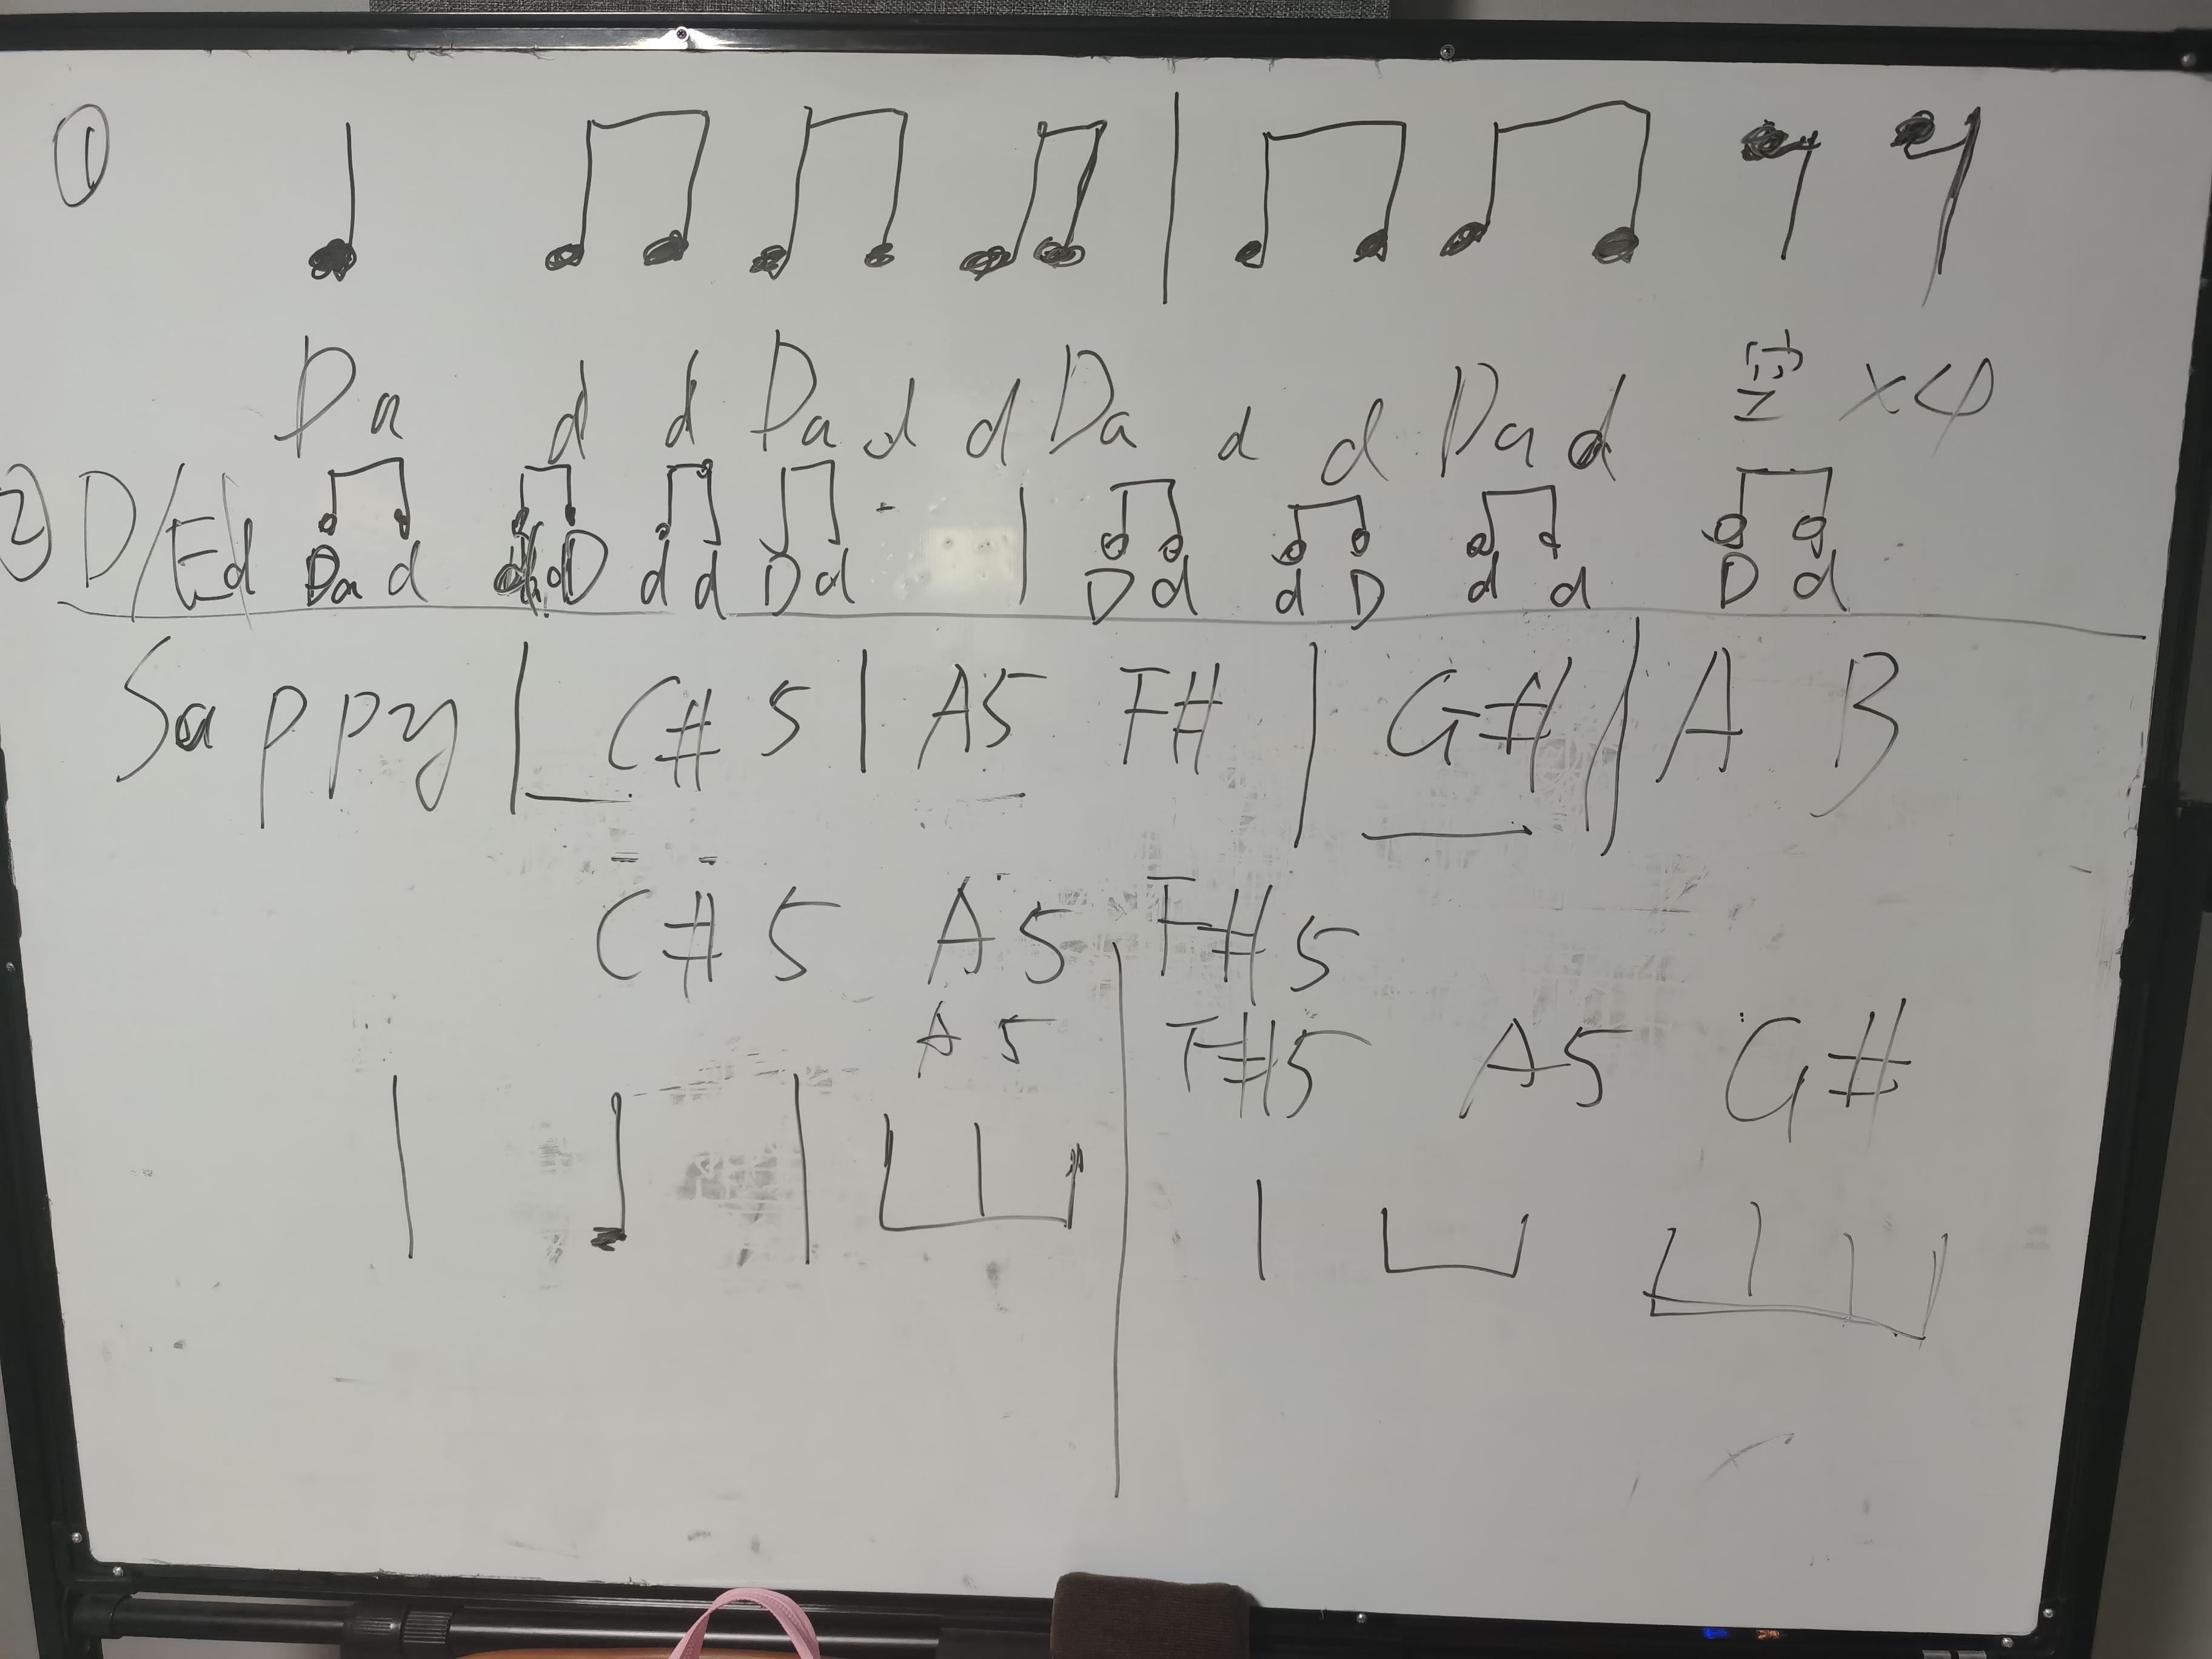 ①
Da d d Da d d Da d d Da d 空 ×4
② D/Ed Da d d D d d D d | D d d D d d D d
Sappy | C#5 | A5 F# | G# | A B
C#5 A5 F#5
A5 F#5 A5 G#